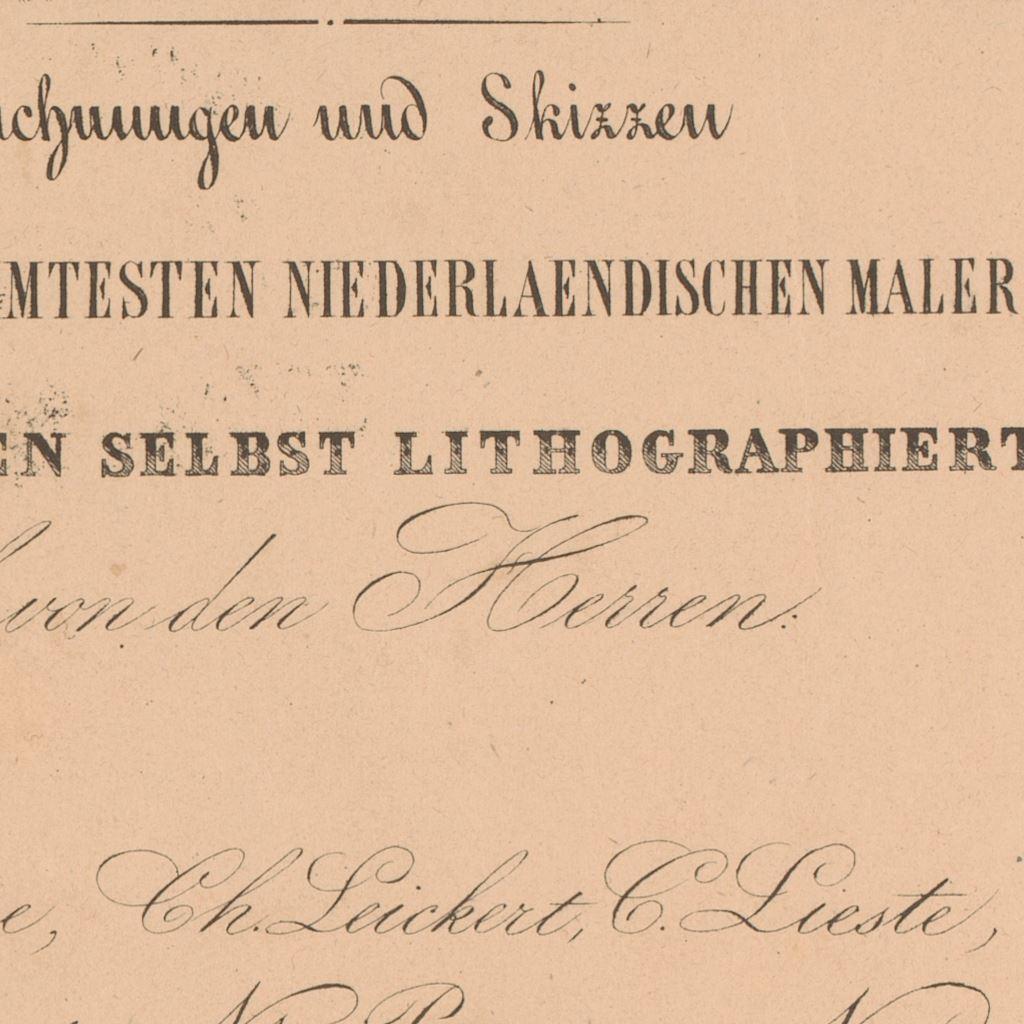 chnungen und Skizzen
MTESTEN NIEDERLAENDISCHEN MALER
EN SELBST LITHOGRAPHIERT
von den Herren:
e, Ch. Leickert, C. Lieste,